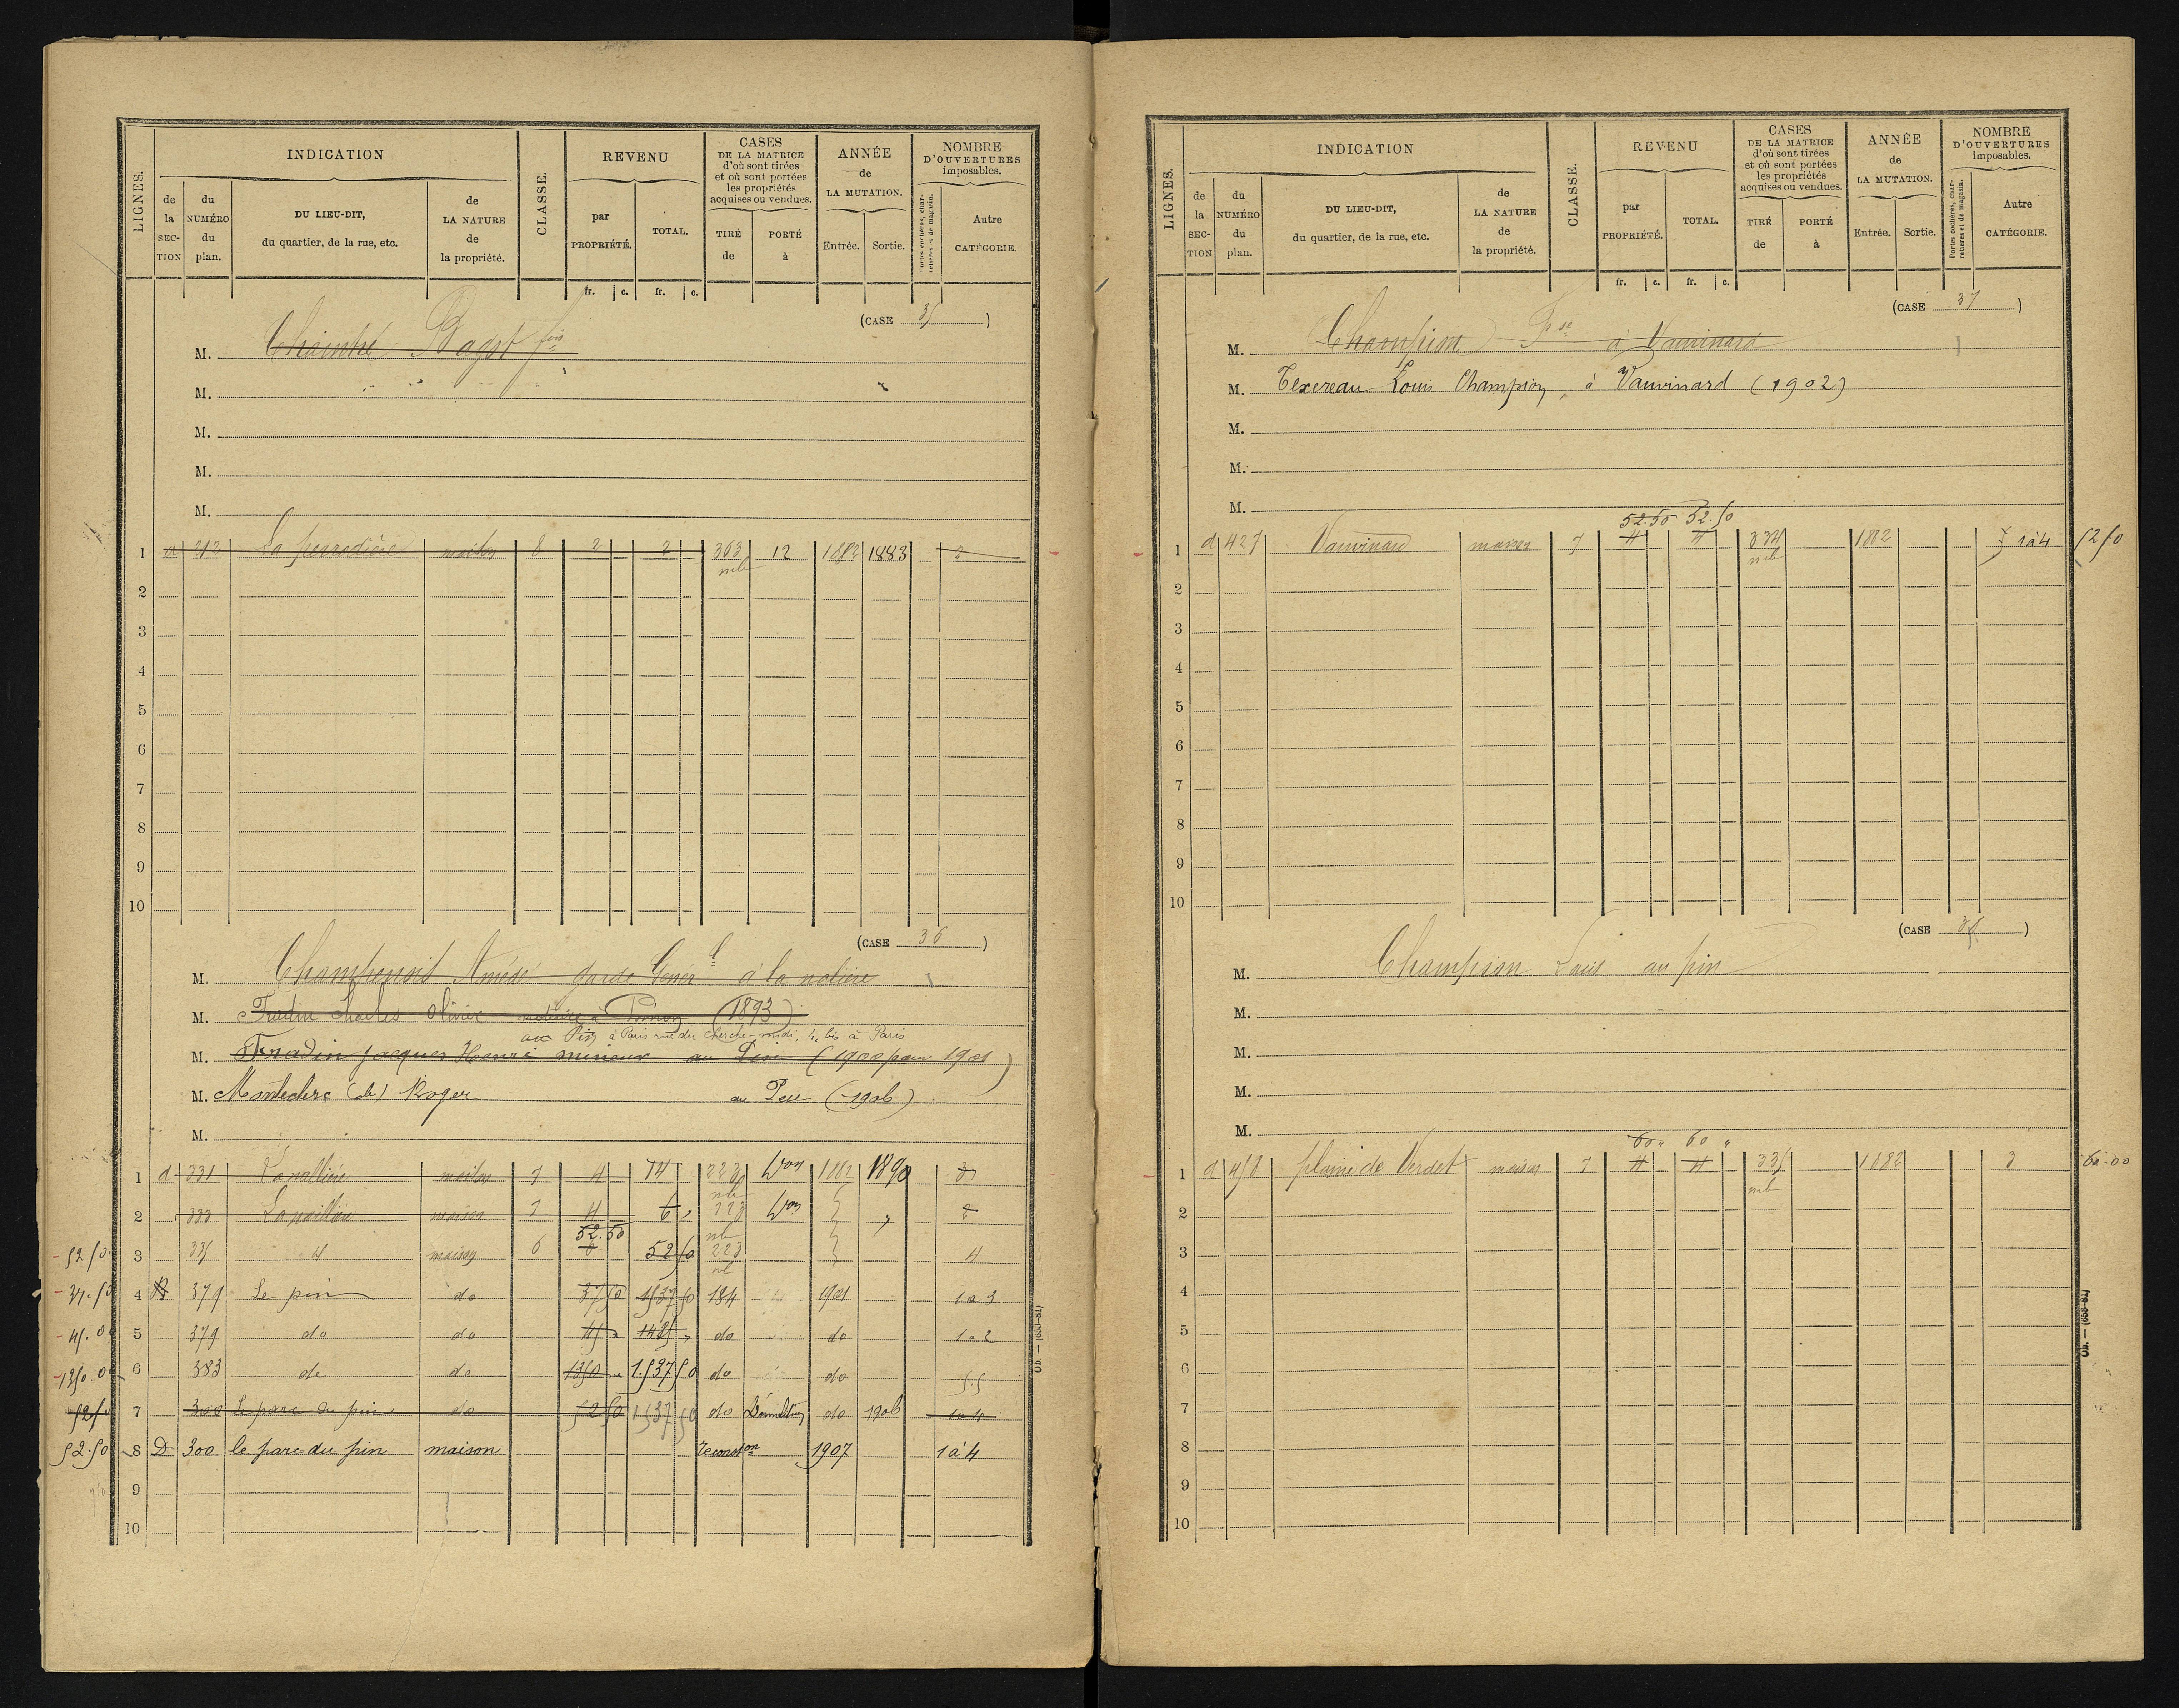 LIGNES. INDICATION CLASSE. REVENU CASES DE LA MATRICE d'où sont tirées et où sont portées les propriétés acquises ou vendues. ANNÉE de LA MUTATION. NOMBRE D'OUVERTURES imposables.
de la SECTION du NUMÉRO du plan. DU LIEU-DIT, du quartier, de la rue, etc. de LA NATURE de la propriété. par PROPRIÉTÉ. TOTAL. TIRÉ de PORTÉ à Entrée. Sortie. Portes cochères, charretières et de magasin. Autre CATÉGORIE.
fr. c. fr. c.
(CASE 35)
M. Chaintre Bapst fils
M.
M.
M.
M.
1 d 212 La perrodière maison 8 2 2 363 12 1882 1883 2
mb
2
3
4
5
6
7
8
9
10
(CASE 36)
M. Champenois Amédé garde Génér à la nolière
M. Fradin Charles Olivier notaire à (1893)
au Pin à Paris rue du Cherche-midi, 4 bis à Paris
M. Fradin Jacques Henri mineur au Pin (1900 pour 1901)
M. Montecler (de) Roger au Peu (1906)
M.
1 d 331 maison 7 4 14 223 1882 1890 3
nb
2 333 maison 7 4 6 223 2
52.50 nb
52.50 3 335 d maison 6 52.50 223 4
nb
37.50 4 379 Le pin do 37 50 1537 50 184 1901 1 a 3
45.00 5 379 do do 45 1485 do do 1 a 2
1350.00 6 383 do do 1350 1.537 50 do do 55
52.50 7 300 Le parc du pin do 52 50 1537 50 do Démolition do 1906 1 a 4
52.50 8 D 300 le parc du pin maison reconston 1907 1 à 4
9
10
LIGNES. INDICATION CLASSE. REVENU CASES DE LA MATRICE d'où sont tirées et où sont portées les propriétés acquises ou vendues. ANNÉE de LA MUTATION. NOMBRE D'OUVERTURES imposables.
de la SECTION du NUMÉRO du plan. DU LIEU-DIT, du quartier, de la rue, etc. de LA NATURE de la propriété. par PROPRIÉTÉ. TOTAL. TIRÉ de PORTÉ à Entrée. Sortie. Portes cochères, charretières et de magasin. Autre CATÉGORIE.
fr. c. fr. c.
(CASE 37)
M. Champion Fse à Vauvinard
M. Texereau Louis Champion, à Vauvinard (1902)
M.
M.
M.
52.50 52.50
1 d 427 Vauvinard maison 7 4 4 334 1882 1 à 4 52 50
mb
2
3
4
5
6
7
8
9
10
(CASE 38)
M. Champion Louis au pin
M.
M.
M.
M.
60 " 60 "
1 d 458 plaine de Verdet maison 7 4 4 335 1882 3 60.00
mb
2
3
4
5
6
7
8
9
10